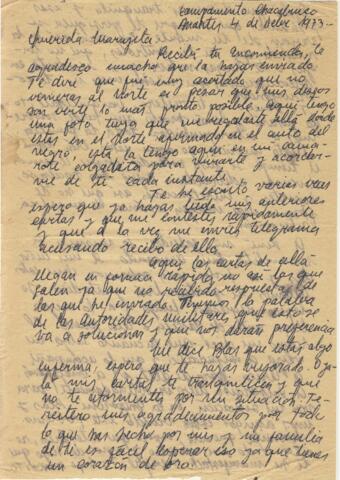 Campamento Chacabuco
Martes 4 de Dcbre 1973.-
Querida Marujita
Recibí tu encomienda, te
agradezco mucho que la hayas enviado.
Te diré que fué muy acertado que no
vinieras al norte a pesar que mis deseos
son verte lo más pronto posible. Aquí tengo
una foto tuya que me regalaste allá donde
estás en el Norte apoyada en el auto del
negro, esta la tengo aquí en mi cama-
rote colgadita para mirarte y acordar-
me de ti cada instante.
Te he escrito varias veces
espero que ya hayas leido mis anteriores
cartas y que me contestes rápidamente
y que a la vez me envies telegrama
acusando recibo de ella.
Aquí las cartas de allá
llegan en forma rápida, no así las que
salen ya que no he recibido respuesta de
las que he enviado. Tenemos la palabra
de las autoridades militares que esto se
va a solucionar y que nos darán preferencia
Me dice Blas que estás algo
enferma, espero que te hayas mejorado. Oja-
lá mis cartas te tranquilicen y que
no te atormentes por mi situación. Te
reitero mis agradecimientos por todo
lo que has hecho por mí y mi familia
de ti es fácil esperar eso ya que tienes
un corazón de oro.